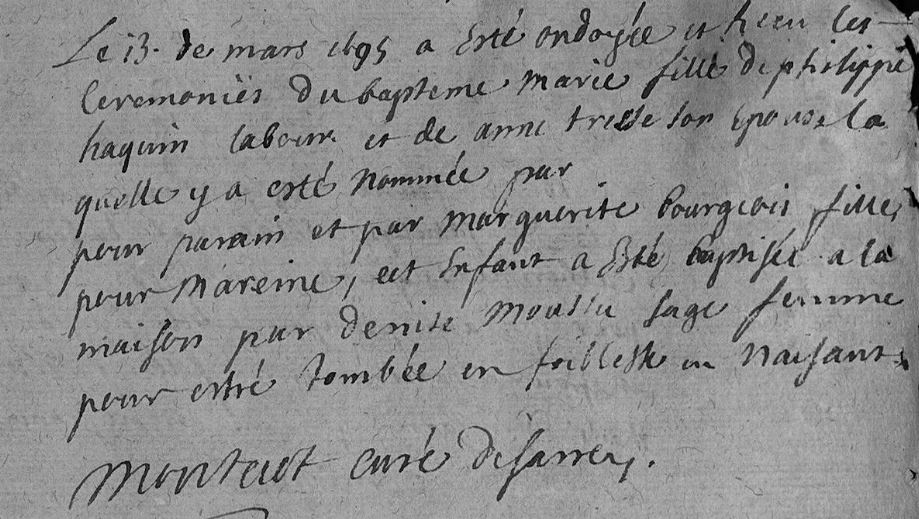 Le 13. de mars 1695 a esté ondoyée et Receu les
Ceremonies du bapteme marie fille de philippe
haquin labour. et de anne tresse son Epouse la
quelle y a esté nommée par
pour parain et par marguerite bourgeois fille,
pour Mareine, cet Enfant a esté baptisée a la
maison par denise moussu sage femme
pour estre tombée en foiblesse en naissant.
curé